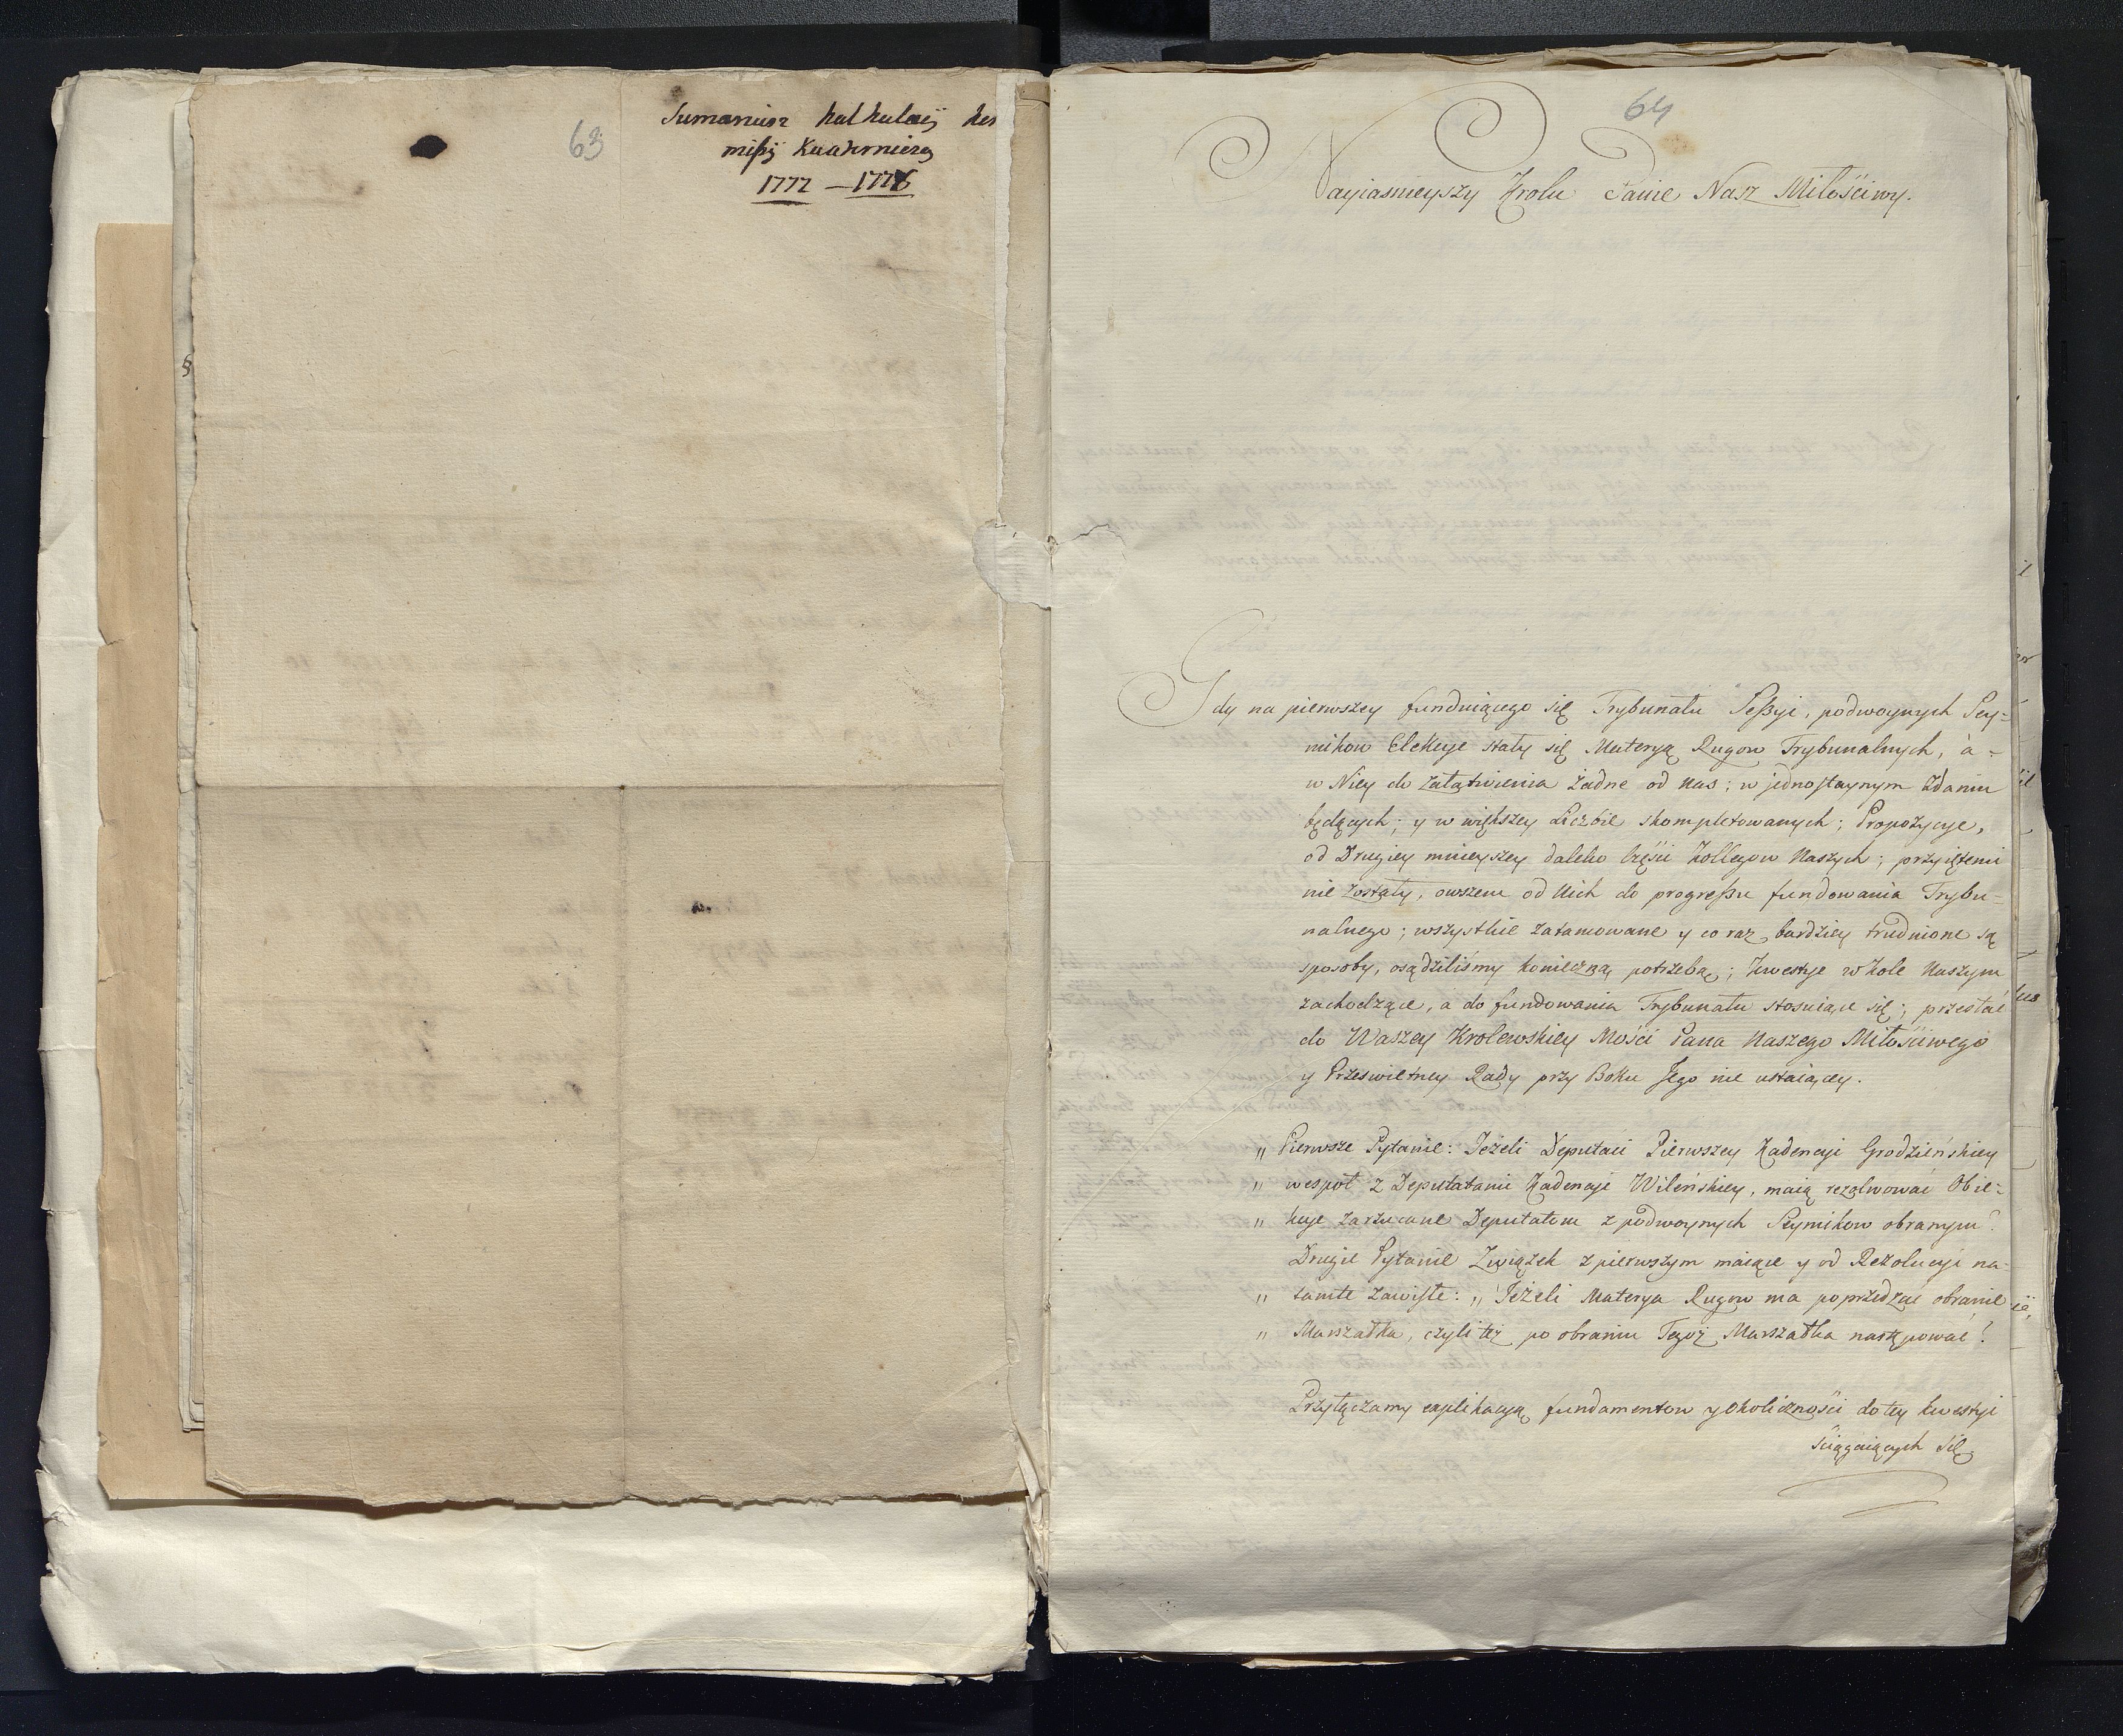 63
Sumariusz kalkulacij ko
mißij Kwaterniczey
1772 — 1776
64
Nayiasnieyszy Krolu Panie Nasz Miłościwy.
Gdy na pierwszey funduiącego się Trybunału Seßyi, podwoynych Sey=
mikow Elekcye stały się Materyą Rugow Trybunalnych, a-
w Niey do załatwienia żadne od nas; w jednostaynym zdaniu
będących; y w większey Liczbie skompletowanych; Propozycye,
od Drugiey mnieyszey daleko części Kollegow Naszych; przyiętemi
nie zostały, owszem od Nich do progreßu fundowania Trybu=
nalnego; wszystkie zatamowane y co raz bardziey trudnione są
sposoby, osądziliśmy konieczną potrzebą; Kwestye w Kole Naszym
zachodzące, a do fundowania Trybunału stosuiące się; przesłać
do Waszey Krolewskiey Mości Pana Naszego Miłościwego
y Prześwietney Rady przy Boku Jego nie ustaiącey.
„ Pierwsze Pytanie: Jeżeli Deputaci Pierwszey Kadencyi Grodzieńskiey
„ wespoł z Deputatami Kadencyi Wileńskiey, maią rezolwować Obie=
„ kcye zarzucane Deputatom z podwoynych Seymikow obranym?
Drugie Pytanie Związek z pierwszym maiące y od Rezolucyi na-
„ tamte zawisłe: „ Jeżeli Materya Rugow ma poprzedzać obranie
„ Marszałka, czyli też po obraniu Tegoż Marszałka następować?
Przyłączamy explikacyą fundamentow y okoliczności do tey kwestyi
ściągaiących się